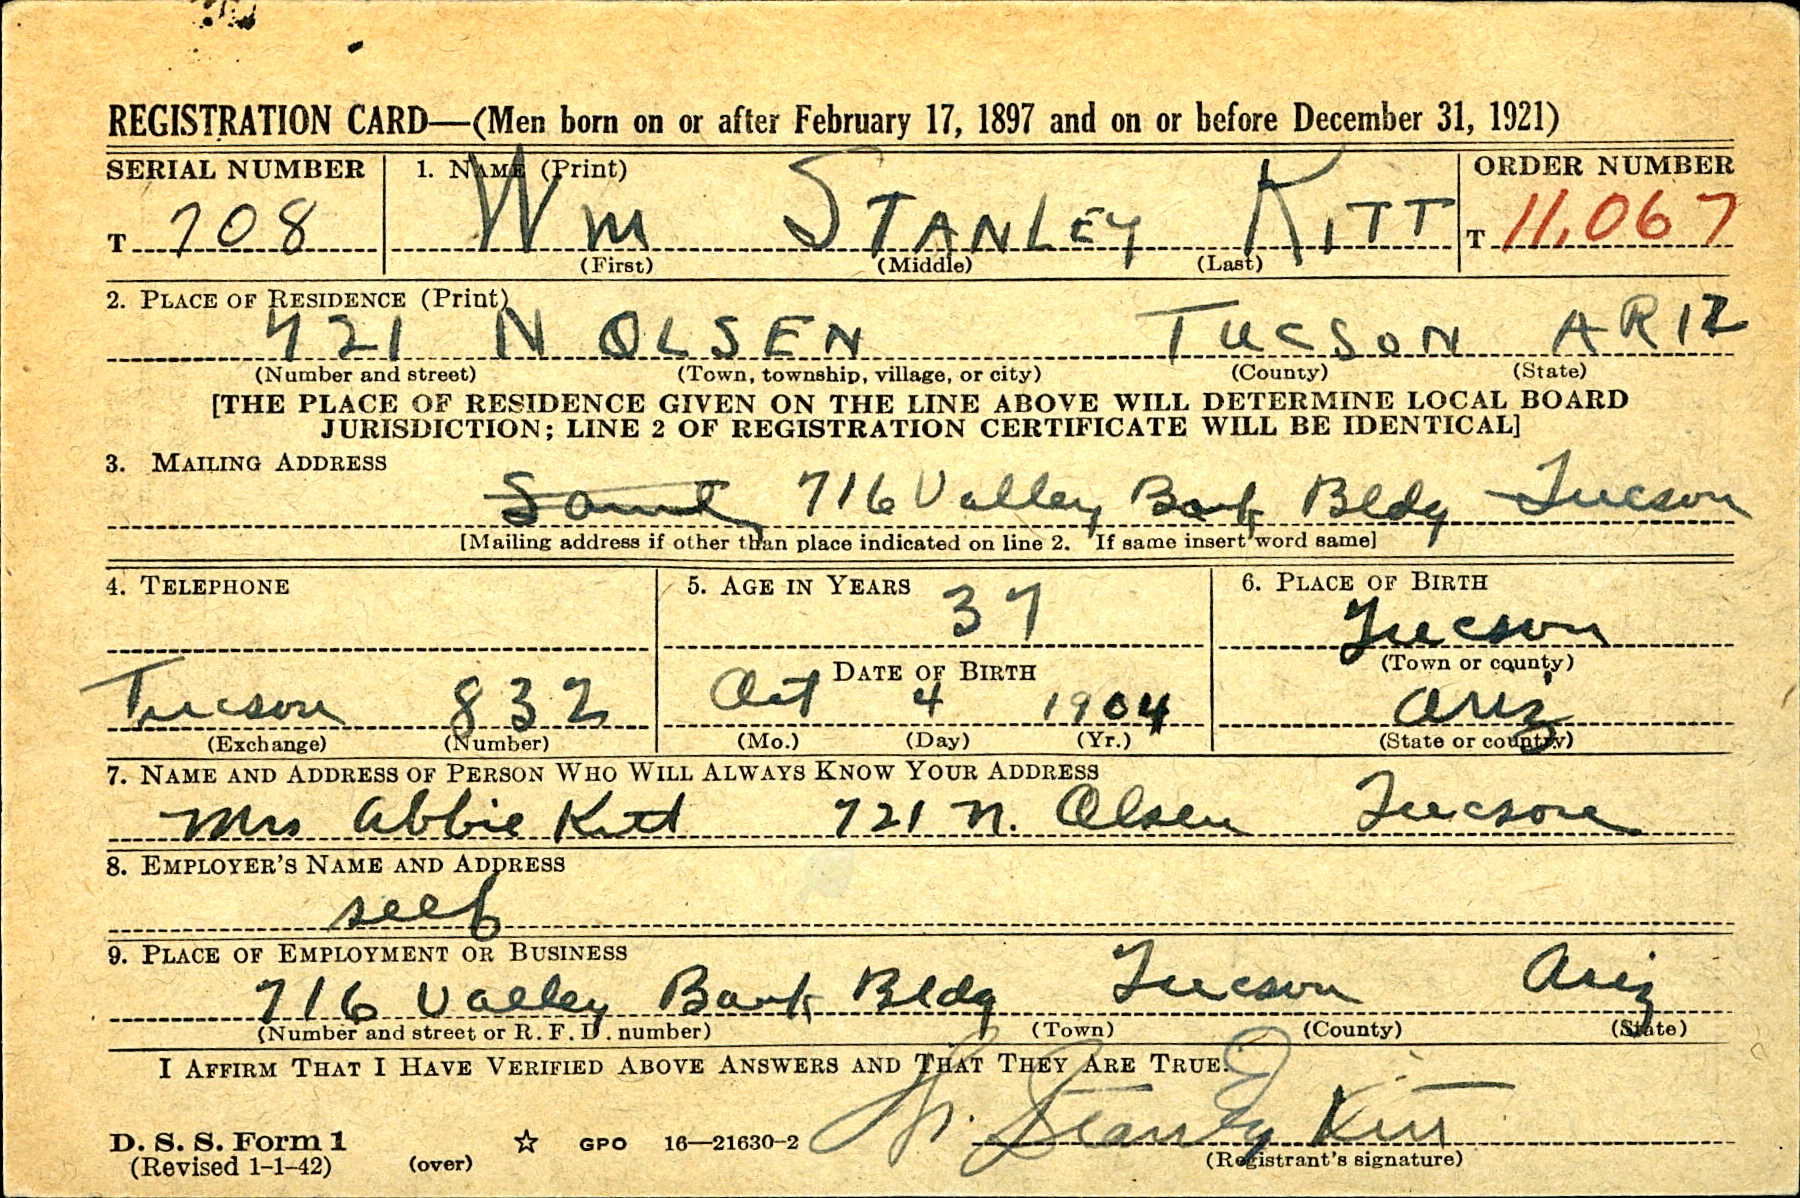 REGISTRATION CARD—(Men born on or after February 17, 1897 and on or before December 31, 1921)
SERIAL NUMBER 1. NAME (Print) ORDER NUMBER
T 708 Wm STANLEY KITT T 11,067
(First) (Middle) (Last)
2. PLACE OF RESIDENCE (Print)
721 N OLSEN TUCSON ARIZ
(Number and street) (Town, township, village, or city) (County) (State)
[THE PLACE OF RESIDENCE GIVEN ON THE LINE ABOVE WILL DETERMINE LOCAL BOARD
JURISDICTION; LINE 2 OF REGISTRATION CERTIFICATE WILL BE IDENTICAL]
3. MAILING ADDRESS
Same 716 Valley Bank Bldg Tucson
[Mailing address if other than place indicated on line 2. If same insert word same]
4. TELEPHONE 5. AGE IN YEARS 6. PLACE OF BIRTH
37 Tucson
DATE OF BIRTH (Town or county)
Tucson 832 Oct 4 1904 Ariz
(Exchange) (Number) (Mo.) (Day) (Yr.) (State or country)
7. NAME AND ADDRESS OF PERSON WHO WILL ALWAYS KNOW YOUR ADDRESS
Mrs Abbie Kitt 721 N. Olsen Tucson
8. EMPLOYER'S NAME AND ADDRESS
self
9. PLACE OF EMPLOYMENT OR BUSINESS
716 Valley Bank Bldg Tucson Ariz
(Number and street or R. F. D. number) (Town) (County) (State)
I AFFIRM THAT I HAVE VERIFIED ABOVE ANSWERS AND THAT THEY ARE TRUE.
W. Stanley Kitt
D. S. S. Form 1 ☆ GPO 16—21630-2
(Revised 1-1-42) (over) (Registrant's signature)